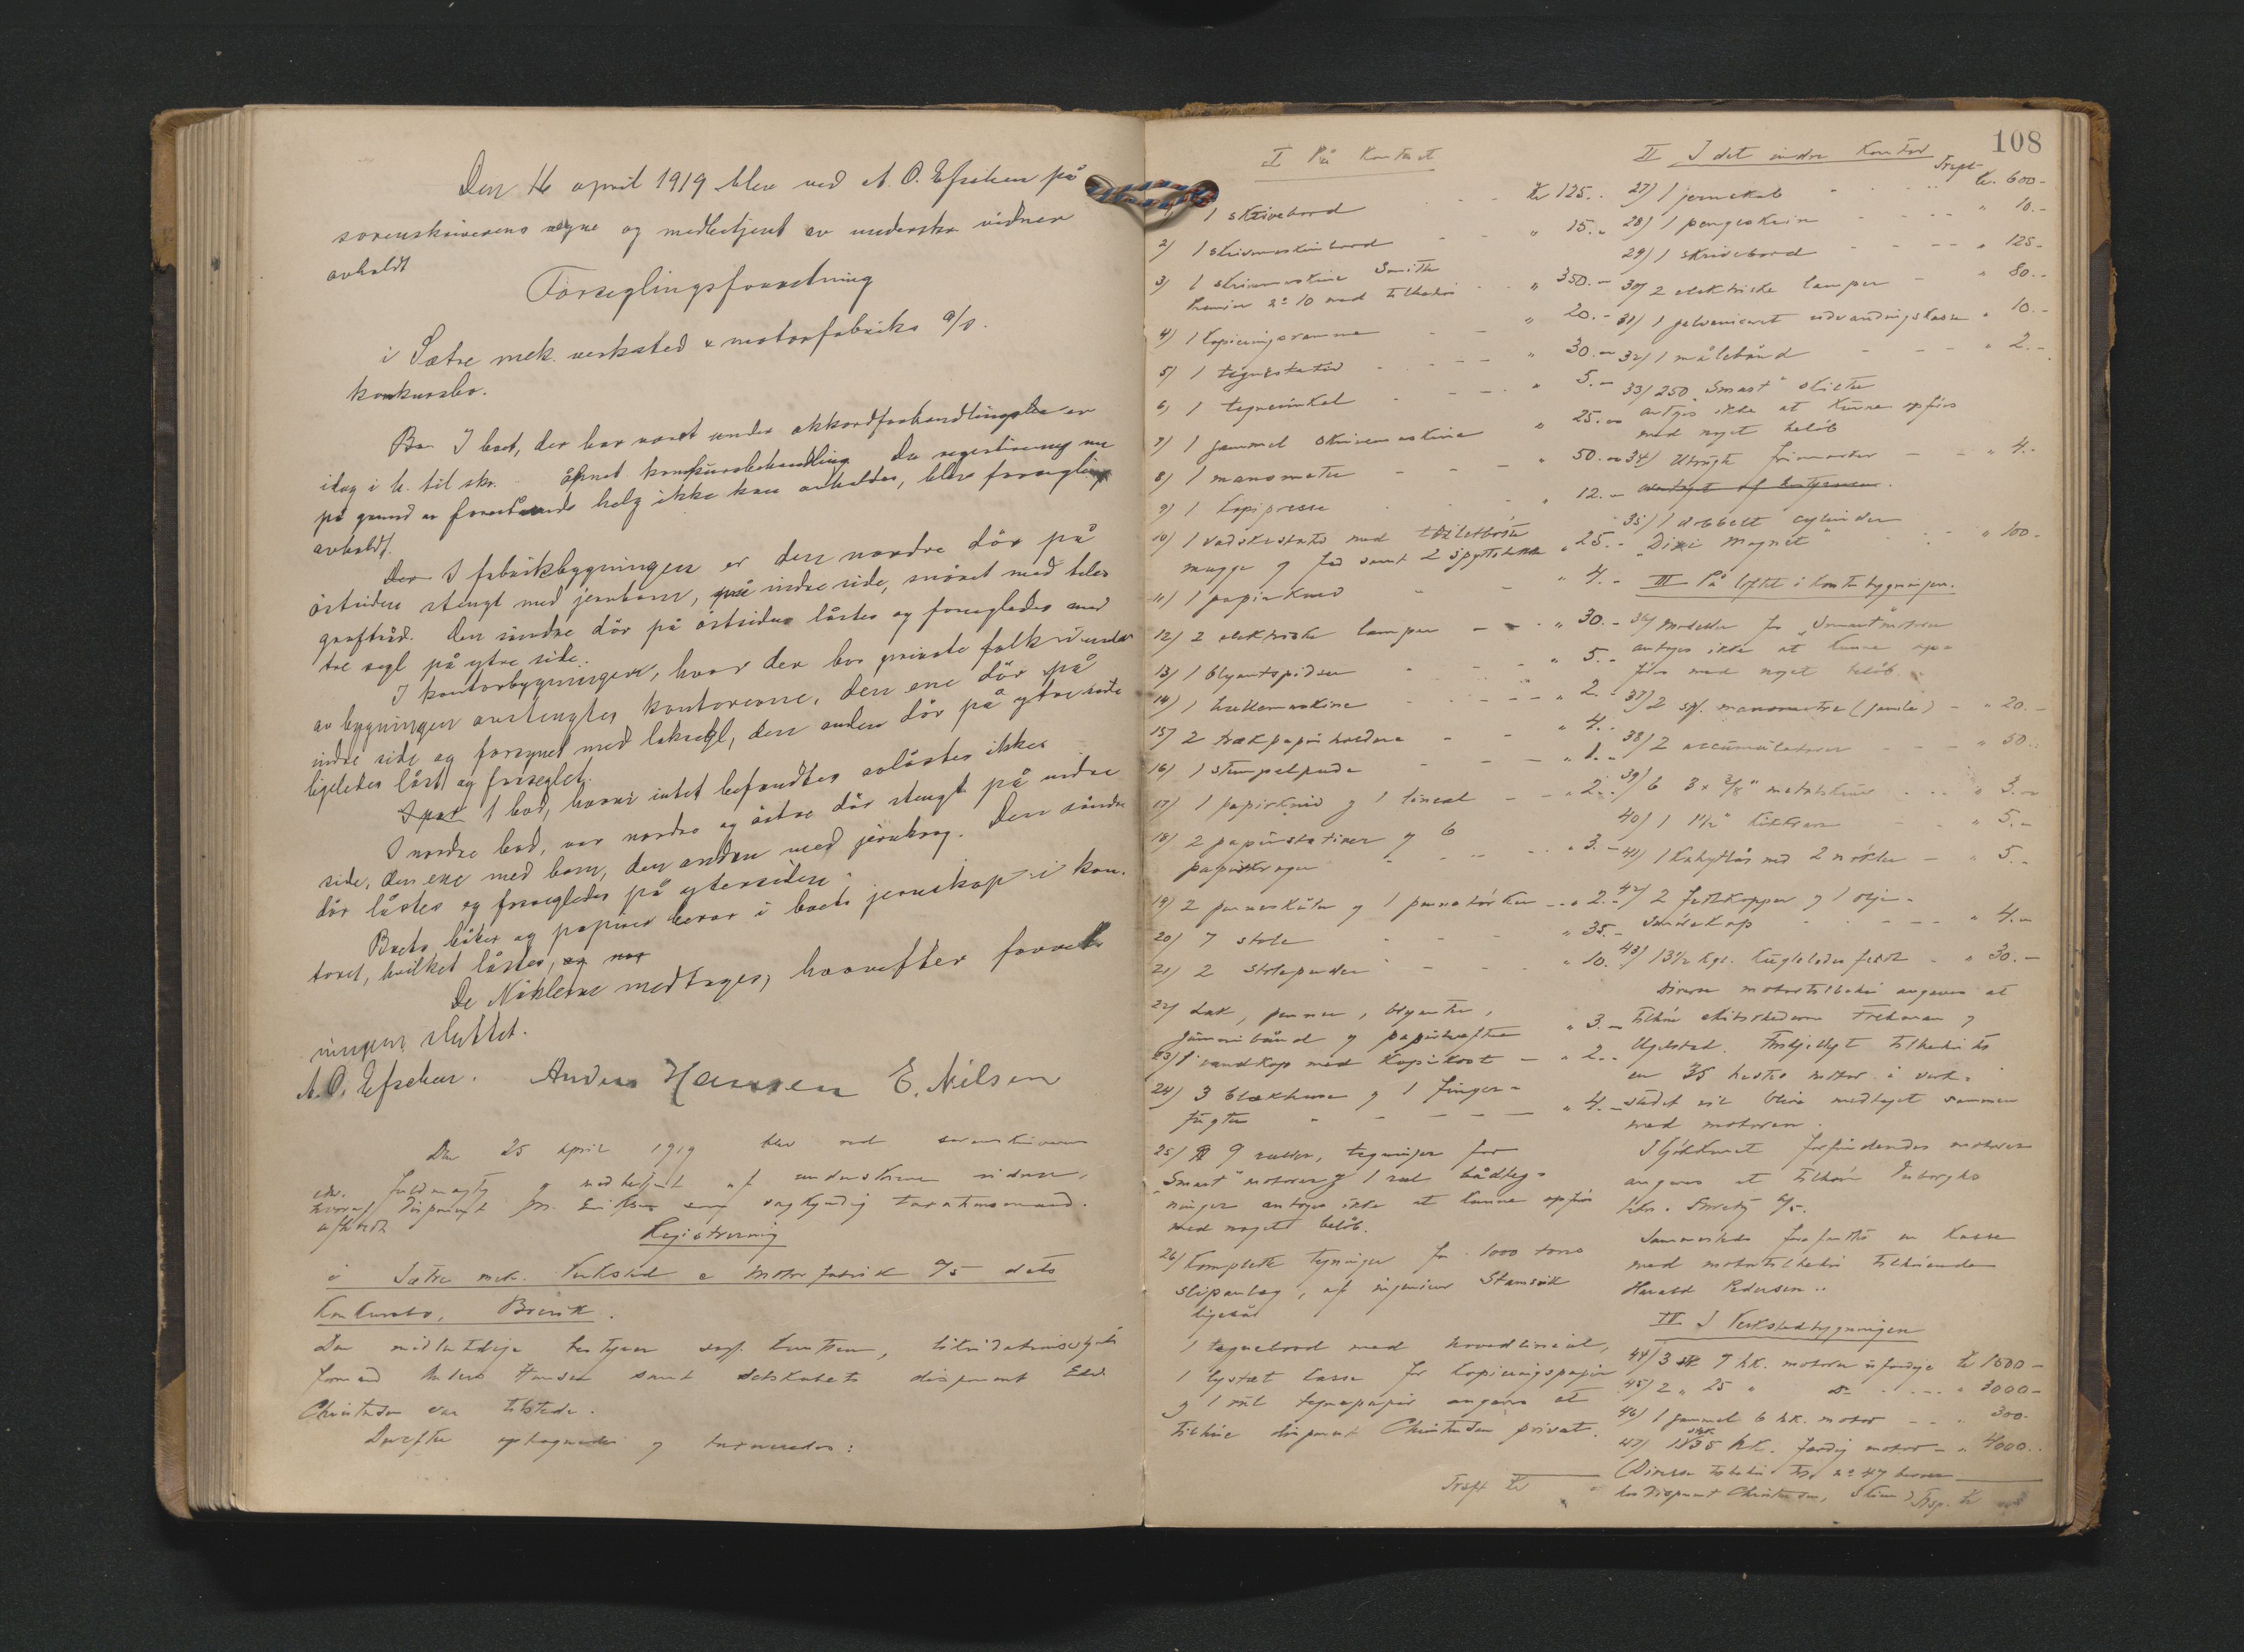 Den 16 april 1919 blev ved A. O. Efskeur på
sorenskriverens vegne og medbetjent av underskr vidner
avholdt
Forseglingsforretning
i Sætre mek. verksted & motorfabriks a/s.
konkursbo.
I boet, der har været under akkordforhandlinger er
idag i h. til skr. åpnet konkursbehandling. Da registrering nu
på grund av forestående helg ikke kan avholdes, blev forsegling
avholdt.
Der I fabrikbygningen er den nordre dör på
östsiden stengt med jernbom, på indre side, snöret med tele-
graftråd. Den söndre dör på östsiden låstes og forsegledes med
tre segl på ytre side.
I kontorbygningen, hvor der bor private folk i under
av bygningen avstengtes kontorerne, den ene dör på
indre side og forsynet med laksegl, den anden dör på ytre side
ligeledes låst og forseglet.
1 bod, hvori intet befandtes avlåstes ikke.
I nordre bod, var nordre og östre dör stengt på indre
side, den ene med bom, den anden med jernkrog. Den söndre
dör låstes og forsegledes på ytersiden.
Boets böker og papirer beror i boets jernskap i kon-
toret, hvilket låstes, og
De Nöklerne medtages, hvorefter forret-
ningen sluttet.
A. O. Efskeur. Anders Hansen E. Nilsen
Den 25 april 1919 blev ved sorenskriveren
edv. fuldmægtig og medbetjent af underskrevne vidner,
hvoraf disponent som sagkyndig taxationsmand
afholdt
Registrering
i Sætre mek. Verksted & Motorfabrik A/S dets
Konkursbo, Brevik.
Den midlertidige bestyrer sagf. Knutsen, likvidationsstyrets
formand Anders Hansen samt selskabets disponent Edv.
Christensen var tilstede.
Derefter optegnedes og taxeredes:
108
I På Kontoret
1 skrivebord - - Kr 125.-
2) 1 skrivmaskinbord - - " 15.-
3) 1 skrivmaskine Smith
Premier No 10 med tilbehör - " 350.-
4) 1 kopieringsramme - - " 20.-
5) 1 tegnestativ - - " 30.-
6) 1 tegnevinkel - - " 5.-
7) 1 gammel skrivemaskine " 25.-
8) 1 manometer - - - " 50.-
9) 1 Kopipresse - - " 12.-
10) 1 vaskestativ med toiletbörste
mugge og fad samt 2 spyttebakker " 25.-
11) 1 papirkurv - - " 4.-
12) 2 elektriske lamper - - " 30.-
13) 1 blyantspidser - - " 5.-
14) 1 heftemaskine - - " 2.-
15) 2 trækpapirholdere - - " 4.-
16) 1 stempelpude - - " 1.-
17) 1 papirkniv og 1 lineal - - " 2.-
18) 2 papirstativer og 6
papirkroger - - " 3.-
19) 2 penneskåler og 1 pennetörker - " 2.-
20) 7 stole - - " 35.-
21) 2 stoleputer - - " 10.-
22) Lak, penner, blyanter,
gummibånd og papirhefter " 3.-
23) 1 vandkop med kopikost - " 2.-
24) 3 blækhuse og 1 finger-
fugter - - " 4.-
25) 9 ruller, tegninger for
"Smart" motorer og 1 rul bådteg-
ninger antages ikke at kunne opföres
med noget belöb.
26) Komplette tegninger for 1000 tons
slipanlæg, af ingeniör Stamsvik
ligeså
1 tegnebord med hovedlineal,
1 lystæt kasse for kopieringspapir
og 1 rul tegnepapir angaves at
tilhöre disponent Christensen privat.
Trsft Kr
II I det indre Kontor
Trsft
27) 1 jernskab - - Kr. 600-
28) 1 pengeskrin - - " 10.-
29) 1 skrivebord - - " 125-
30) 2 elektriske lamper - " 80.-
31) 1 galvaniseret udvandingskasse " 10.-
32) 1 målebånd - - " 2.-
33) 250 "Smart" skilter
antages ikke at kunne opföres
med noget belöb
34) Ubrugte frimærker - - " 4.-
35) 1 dobbelt cylinder
"Dixi Magnet" - - " 100-
III På loftet i kontorbygningen.
36) Modeller for "Smart" motoren
antages ikke at kunne op-
föres med noget belöb.
37) 2 manometre (gamle) - " 20.-
38) 2 accumulatorer - - " 50.-
39) 6 3 x 3/8" metalskruer - - " 3.-
40) 1 1 1/2" - " 5.-
41) 1 kahytlås med 2 nökler - " 5.-
42) 2 fettkopper og 1 olje-
smörekop - - " 4.-
43) 13 1/2 kgr. kuglelager fett - " 30.-
Diverse motortilbehör angaves at
tilhöre
Ugelstad. Forskjelligt tilbehör til
en 35 hestes motor i verk-
stedet vil blive medtaget sammen
med motoren.
forfindendes motorer
angaves at tilhöre
A/S.
Sammesteds forefantes en kasse
med motortilbehör tilhörende
Harald Pedersen.
IV I Verkstedbygningen
44) 3 stk 9 hk. motorer ufærdige Kr 1500-
45) 2 " 25 " do - - " 3000-
46) 1 gammel 6 hk. motor - - " 300-
47) 1 stk. 35 hk. færdig motor - " 4000.-
(Diverse tilbehör til No 47 beror
hos disponent Christensen, Trsp. Kr